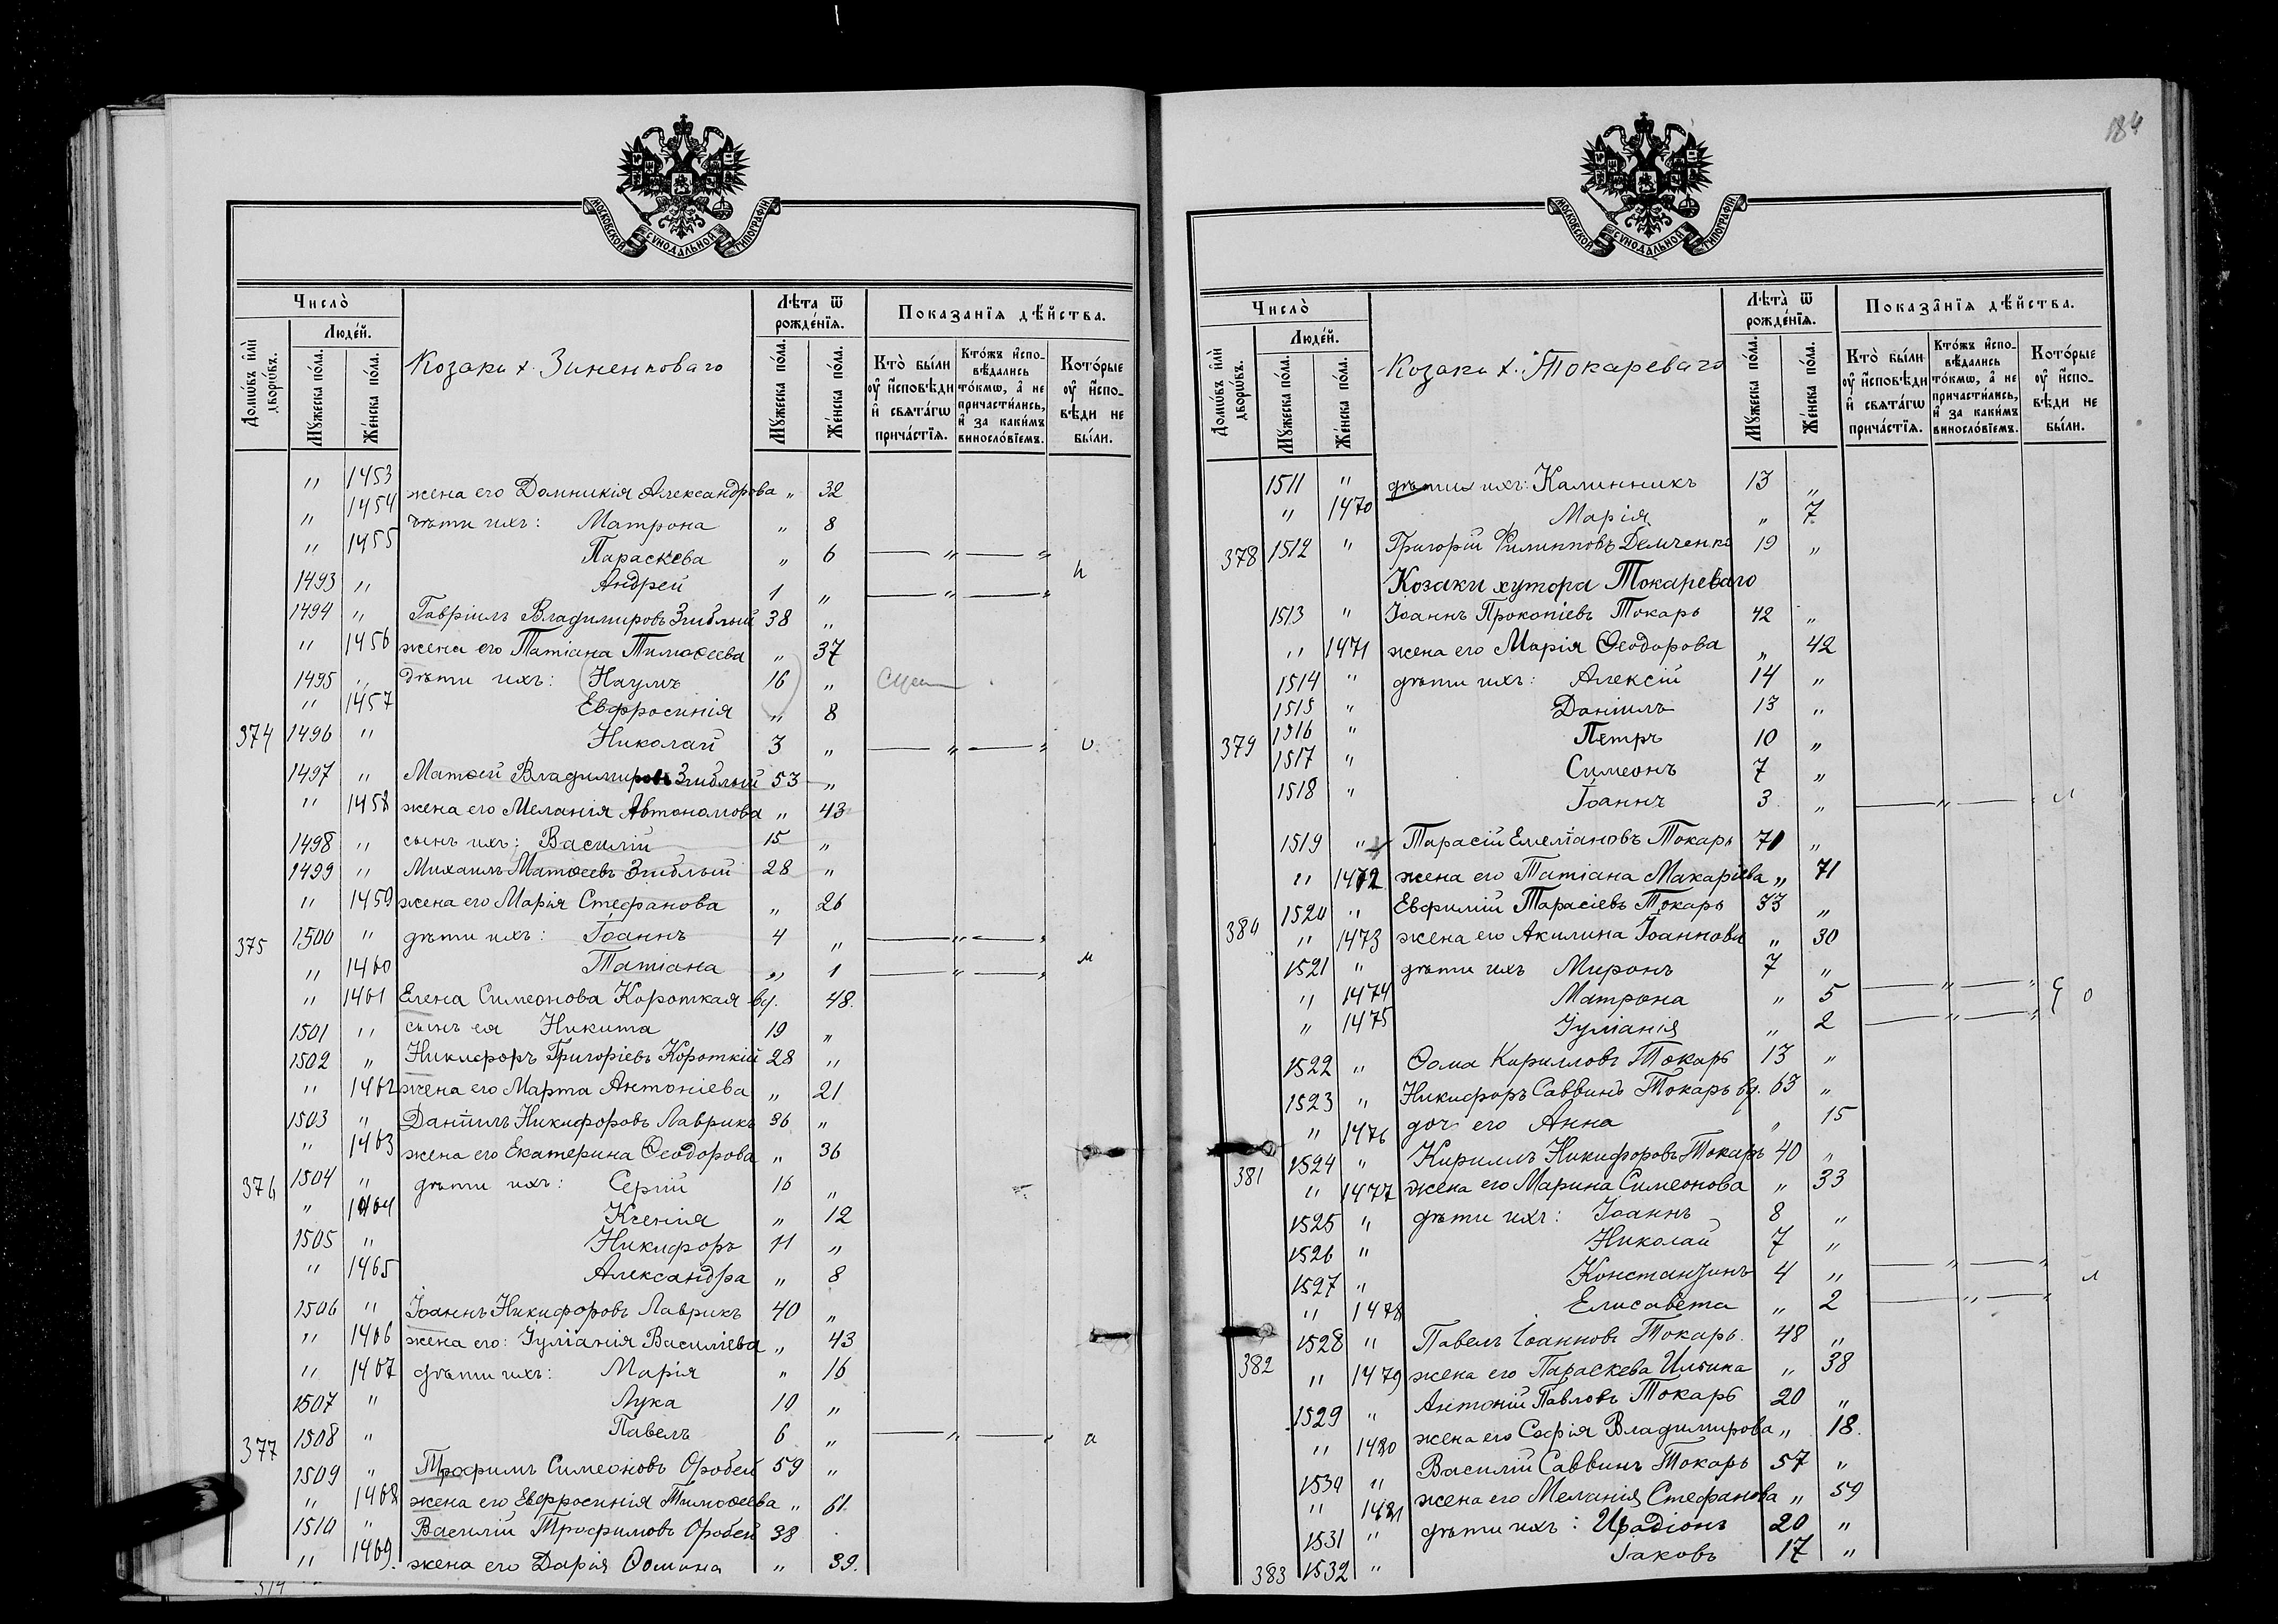 МОСКОВСКОЙ СѴНОДАЛЬНОЙ ТИПОГРАФІИ
Число̀
Люде́й.
Домѡ́въ и҆лѝ дворѡ́въ.
Мꙋ́жеска по́ла.
Же́нска по́ла.
Козаки х. Зиненковаго
Лѣ́та ѿ рожде́нїѧ.
Мꙋ́жеска по́ла.
Же́нска по́ла.
Показа́нїѧ дѣ́йства.
Кто̀ бы́ли ᲂу҆ и҆́сповѣди и҆ свѧта́гѡ прича́стїѧ.
Кто́жъ и҆спо-вѣ́дались то́кмѡ, а҆ не причасти́лись, и҆ за каки́мъ виносло́вїемъ.
Кото́рые ᲂу҆ и҆́спо-вѣди не бы́ли.
„ 1453 жена его Домникія Александрова „ 32
„ 1454 дѣти ихъ: Матрона „ 8
„ 1455 Параскева „ 6 — „ — „
1493 „ Андрей 1 „ — „ — „ н
1494 „ Гавріилъ Владимировъ Згиблый 38 „
„ 1456 жена его Татіана Тимоѳеева „ 37
1495 „ дѣти ихъ: (Наумъ 16) „
„ 1457 Евфросинія „ 8
374 1496 „ Николай 3 „ — „ — „
1497 „ Матѳей Владимировъ Згиблый 53 „
„ 1458 жена его Меланія Автономова „ 43
1498 „ сынъ ихъ: Василій 15 „
1499 „ Михаилъ Матѳеевъ Згиблый 28 „
„ 1459 жена его Марія Стефанова „ 26
375 1500 „ дѣти ихъ: Іоаннъ 4 „ — „ — „
„ 1460 Татіана „ 1 — „ — „ м
„ 1461 Елена Симеонова Короткая вд. 48.
1501 „ сынъ ея Никита 19 „
1502 „ Никифоръ Григоріевъ Короткій 28 „
„ 1462 жена его Марта Антоніева „ 21
1503 „ Даніилъ Никифоровъ Лаврикъ 36 „
„ 1463 жена его Екатерина Ѳеодорова „ 36
376 1504 „ дѣти ихъ: Сергій 16 „
„ 1464 Ксенія „ 12
1505 „ Никифоръ 11 „
„ 1465 Александра „ 8
1506 „ Іоаннъ Никифоровъ Лаврикъ 40 „
„ 1466 жена его: Іуліанія Василіева „ 43
„ 1467 дѣти ихъ: Марія „ 16
1507 „ Лука 10 „
377 1508 „ Павелъ 6 „ — „ — „ и
1509 „ Трофимъ Симеоновъ Оробей 59 „
„ 1468 жена его Евфросинія Тимоѳеева „ 61.
1510 „ Василій Трофимовъ Оробей 38
„ 1469. жена его Дарія Ѳомина „ 39.
184
МОСКОВСКОЙ СѴНОДАЛЬНОЙ ТИПОГРАФІИ
Число̀
Люде́й.
Домѡ́въ и҆лѝ дворѡ́въ.
Мꙋ́жеска по́ла.
Же́нска по́ла.
Козаки х. Токареваго
Лѣ́та ѿ рожде́нїѧ.
Мꙋ́жеска по́ла.
Же́нска по́ла.
Показа́нїѧ дѣ́йства.
Кто̀ бы́ли ᲂу҆ и҆́сповѣди и҆ свѧта́гѡ прича́стїѧ.
Кто́жъ и҆спо-вѣ́дались то́кмѡ, а҆ не причасти́лись, и҆ за каки́мъ виносло́вїемъ.
Кото́рые ᲂу҆ и҆́спо-вѣди не бы́ли.
1511 „ дѣти ихъ: Калинникъ 13 „
„ 1470 Марія „ 7
378 1512 „ Григорій Филипповъ Демченко 19 „
Козаки хутора Токареваго
1513 „ Іоаннъ Прокопіевъ Токарь 42 „
„ 1471 жена его Марія Ѳеодорова „ 42
1514 „ дѣти ихъ: Алексій 14 „
1515 „ Даніилъ 13 „
379 1516 „ Петръ 10 „
1517 „ Симеонъ 7 „
1518 „ Іоаннъ 3 „ — „ — „ л
1519 „ Тарасій Емеліановъ Токарь 71 „
„ 1472 жена его Татіана Макаріева „ 71
1520 „ Евфимій Тарасіевъ Токарь 33 „
380 „ 1473 жена его Акилина Іоаннова „ 30
1521 „ дѣти ихъ Миронъ 7 „
„ 1474 Матрона „ 5 — „ — „
„ 1475 Іуліанія „ 2 — „ — „ о
1522 „ Ѳома Кирилловъ Токарь 13 „
1523 „ Никифоръ Саввинъ Токарь вд. 63 „
„ 1476 дочь его Анна „ 15
1524 „ Кириллъ Никифоровъ Токарь 40 „
381 „ 1477 жена его Марина Симеонова „ 33
1525 „ дѣти ихъ: Іоаннъ 8 „
1526 „ Николай 7 „
1527 „ Константинъ 4 „ — „ — „
„ 1478 Елисавета „ 2 — „ — „ л
1528 „ Павелъ Іоанновъ Токарь. 48 „
382 „ 1479 жена его Параскева Ильина „ 38
1529 „ Антоній Павловъ Токарь 20 „
„ 1480 жена его Софія Владимирова „ 18.
1530 „ Василій Саввинъ Токарь 57 „
„ 1481 жена его Меланія Стефанова „ 59
1531 „ дѣти ихъ: Иродіонъ 20 „
383 1532 „ Іаковъ 17 „